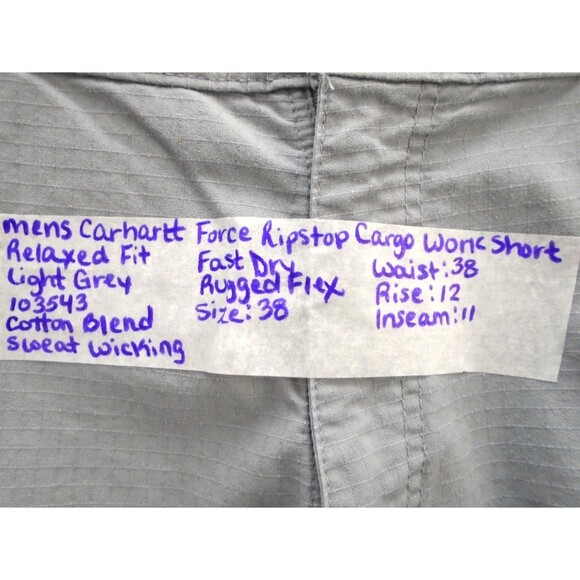 mens Carhartt Force Ripstop Cargo Work Short
Relaxed Fit
Light Grey
103543
Cotton Blend
Sweat Wicking
Fast Dry
Rugged Flex
Size: 38
Waist: 38
Rise: 12
Inseam: 11